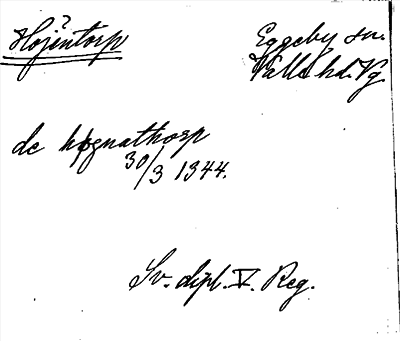 ?
Hojentorp
Eggeby sn.
Valle hd. Vg
de høgnathorp
30/3 1344.
Sv. dipl. V. Reg.